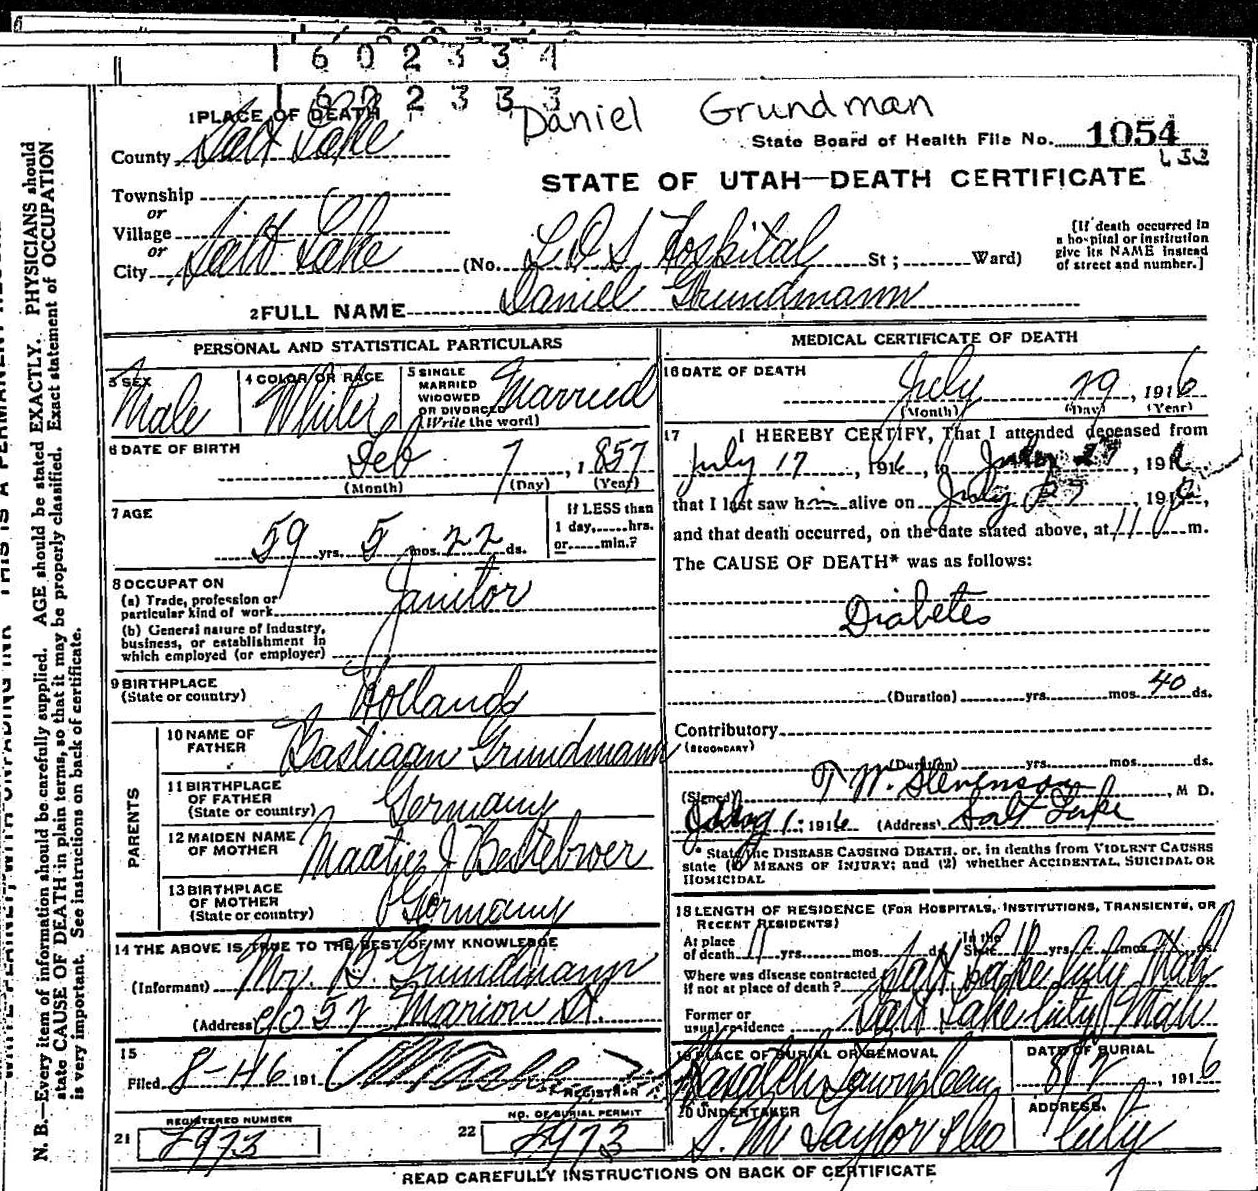 1 6 0 2 3 3 4
1 6 0 2 3 3 3
Daniel Grundman
State Board of Health File No. 1054
STATE OF UTAH—DEATH CERTIFICATE
1 PLACE OF DEATH
County Salt Lake
Township
or
Village
or
City Salt Lake (No. L.D.S Hospital St; Ward)
[If death occurred in
a hospital or institution
give its NAME instead
of street and number.]
2 FULL NAME Daniel Grundmann
PERSONAL AND STATISTICAL PARTICULARS
3 SEX Male
4 COLOR OR RACE White
5 SINGLE
MARRIED
WIDOWED
OR DIVORCED
(Write the word) Married
6 DATE OF BIRTH
Feb 7, 1857
(Month) (Day) (Year)
7 AGE
59 yrs. 5 mos. 22 ds.
If LESS than
1 day, hrs.
or min.?
8 OCCUPATION
(a) Trade, profession or
particular kind of work Janitor
(b) General nature of industry,
business, or establishment in
which employed (or employer)
9 BIRTHPLACE
(State or country) Holland
PARENTS
10 NAME OF
FATHER Bastiaan Grundmann
11 BIRTHPLACE
OF FATHER
(State or country) Germany
12 MAIDEN NAME
OF MOTHER Maatje J Bestebroer
13 BIRTHPLACE
OF MOTHER
(State or country) Germany
14 THE ABOVE IS TRUE TO THE BEST OF MY KNOWLEDGE
(Informant) Mr. B. Grundmann
(Address) Marion St.
15
Filed 191
REGISTRAR
REGISTERED NUMBER
21
NO. OF BURIAL PERMIT
22
MEDICAL CERTIFICATE OF DEATH
16 DATE OF DEATH
July 29, 1916
(Month) (Day) (Year)
17 I HEREBY CERTIFY, That I attended deceased from
July 17, 1916, to July 191
that I last saw him alive on July 191
and that death occurred, on the date stated above, at 11 p m.
The CAUSE OF DEATH* was as follows:
Diabetes
(Duration) yrs. mos. 40 ds.
Contributory
(SECONDARY)
(Duration) yrs. mos. ds.
(Signed) T. W. Stevenson, M D.
Aug 1, 1916 (Address) Salt Lake
State the DISEASE CAUSING DEATH, or, in deaths from VIOLENT CAUSES
state (1) MEANS OF INJURY; and (2) whether ACCIDENTAL, SUICIDAL OR
HOMICIDAL
18 LENGTH OF RESIDENCE (FOR HOSPITALS, INSTITUTIONS, TRANSIENTS, OR
RECENT RESIDENTS)
At place
of death 11 yrs. mos. ds. In the
State 11 yrs. mos. ds.
Where was disease contracted
if not at place of death? Salt Lake City Utah
Former or
usual residence Salt Lake City Utah
19 PLACE OF BURIAL OR REMOVAL
Wasatch Lawn Cem
DATE OF BURIAL
8/2, 1916
20 UNDERTAKER
S. M. Taylor & Co
ADDRESS.
City
READ CAREFULLY INSTRUCTIONS ON BACK OF CERTIFICATE
N. B.—Every item of information should be carefully supplied. AGE should be stated EXACTLY. PHYSICIANS should
state CAUSE OF DEATH in plain terms, so that it may be properly classified. Exact statement of OCCUPATION
is very important. See instructions on back of certificate.